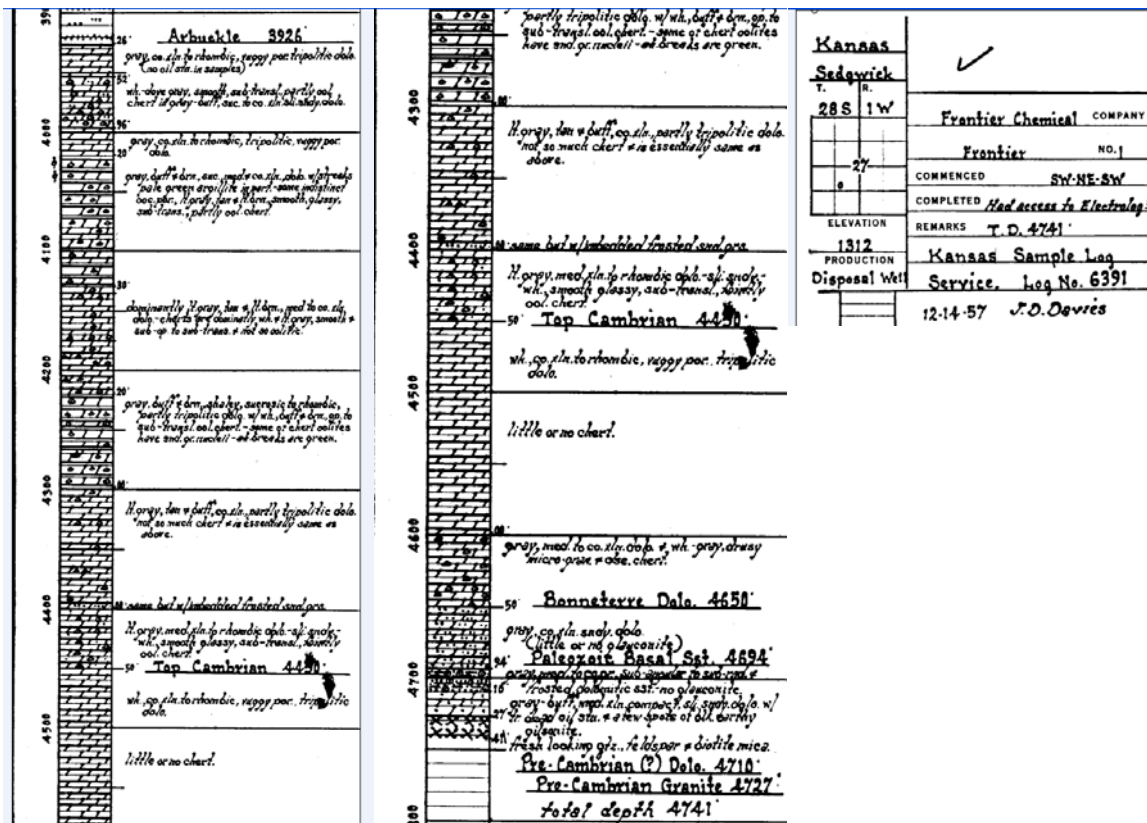 390
26'
Arbuckle 3926'
gray, co. xln. to rhombic, vuggy por. tripolitic dolo.
(no oil stn. in samples)
52'
wh.-dove gray, smooth, sub-transl. partly ool.
chert & gray-buff, suc. to co. xln. sli. sndy. dolo.
96'
4000
gray, co. xln. to rhombic, tripolitic, vuggy por.
dolo.
20'
gray, buff & brn., suc., med. & co. xln. dolo. w/streaks
pale green argillite in part - some indistinct
ooc. por., lt. gray, tan & lt. brn., smooth, glassy,
sub-trans., partly ool. chert.
4100
30'
dominantly lt. gray, tan & lt. brn., med. to co. xln.
dolo. - cherts are dominatly wh. & lt. gray, smooth &
sub-op. to sub-trans. & not so oolitic.
4200
20'
gray, buff & brn., shaley, sucrosic to rhombic,
partly tripolitic dolo. w/ wh., buff & brn., op. to
sub-transl. ool. chert. - some of chert oolites
have snd. gr. nuclei - sh breaks are green.
4300
00'
lt. gray, tan & buff, co. xln., partly tripolitic dolo.
not so much chert & is essentially same as
above.
4400
same but w/imbedded frosted snd. grs.
lt. gray, med. xln. to rhombic dolo. - sli. sndy. -
wh., smooth glassy, sub-transl.,
ool. chert.
50'
Top Cambrian 4450'
wh., co. xln. to rhombic, vuggy por. tripolitic
dolo.
4500
little or no chert.
partly tripolitic dolo. w/ wh., buff & brn., op. to
sub-transl. ool. chert. - some of chert oolites
have snd. gr. nuclei - sh breaks are green.
00'
4300
lt. gray, tan & buff, co. xln., partly tripolitic dolo.
not so much chert & is essentially same as
above.
4400
same but w/imbedded frosted snd. grs.
lt. gray, med. xln. to rhombic dolo. - sli. sndy. -
wh., smooth glassy, sub-transl.,
ool. chert.
50'
Top Cambrian 4450'
wh., co. xln. to rhombic, vuggy por. tripolitic
dolo.
4500
little or no chert.
4600
00'
gray, med. to co. xln. dolo. & wh.-gray, drusy
micro-qrse & dse. chert.
50'
Bonneterre Dolo. 4650'
gray, co. xln. sndy. dolo.
(little or no glauconite)
94'
Paleozoic Basal Sst. 4694'
4700
gray, med. to co. gr., sub-angular to sub-rnd. &
frosted dolomitic sst. - no glauconite.
16'
gray-buff, med. xln. compact, sli. sndy. dolo. w/
27'
tr. dead oil stn. & a few spots of blk. earthy
gilsonite.
41'
fresh looking qtz., feldspar & biotite mica.
Pre-Cambrian (?) Dolo. 4710'
Pre-Cambrian Granite 4727'
total depth 4741'
800
Kansas
Sedgwick
T. R.
28 S 1 W
27
ELEVATION
1312
PRODUCTION
Disposal Well
Frontier Chemical COMPANY
Frontier NO. 1
COMMENCED SW-NE-SW
COMPLETED Had access to Electrolog.
REMARKS T.D. 4741'
Kansas Sample Log
Service. Log No. 6391
12-14-57 J.D. Davies